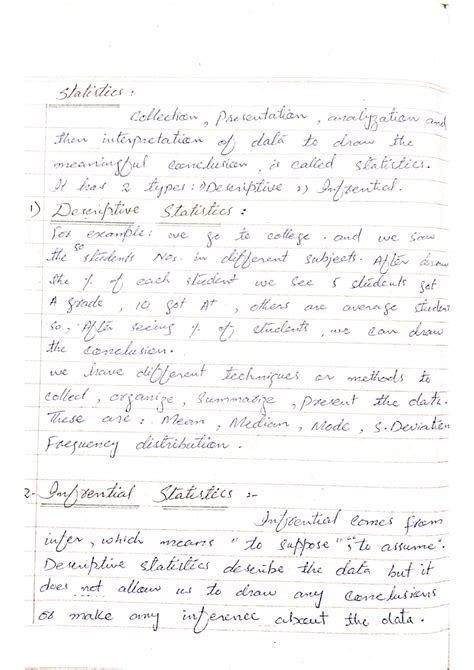 Statistics:
Collection, Presentation, analyzation and
then interpretation of data to draw the
meaningful conclusion, is called statistics.
It has 2 types: 1) Descriptive 2) Infrential.
1) Descriptive Statistics:
For example: we go to college. and we saw
the 50 students Nos. in different subjects. After draw
the % of each student we see 5 students got
A grade, 10 got A+, others are average student
so, After seeing % of students, we can draw
the conclusion.
we have different techniques or methods to
collect, organize, summarize, present the data.
These are: Mean, Median, Mode, S. Deviation
Frequency distribution.
2- Infrential Statistics :-
Infrential comes from
infer, which means "to suppose"; "to assume".
Descriptive statistics describe the data but it
does not allow us to draw any conclusions
or make any inference about the data.